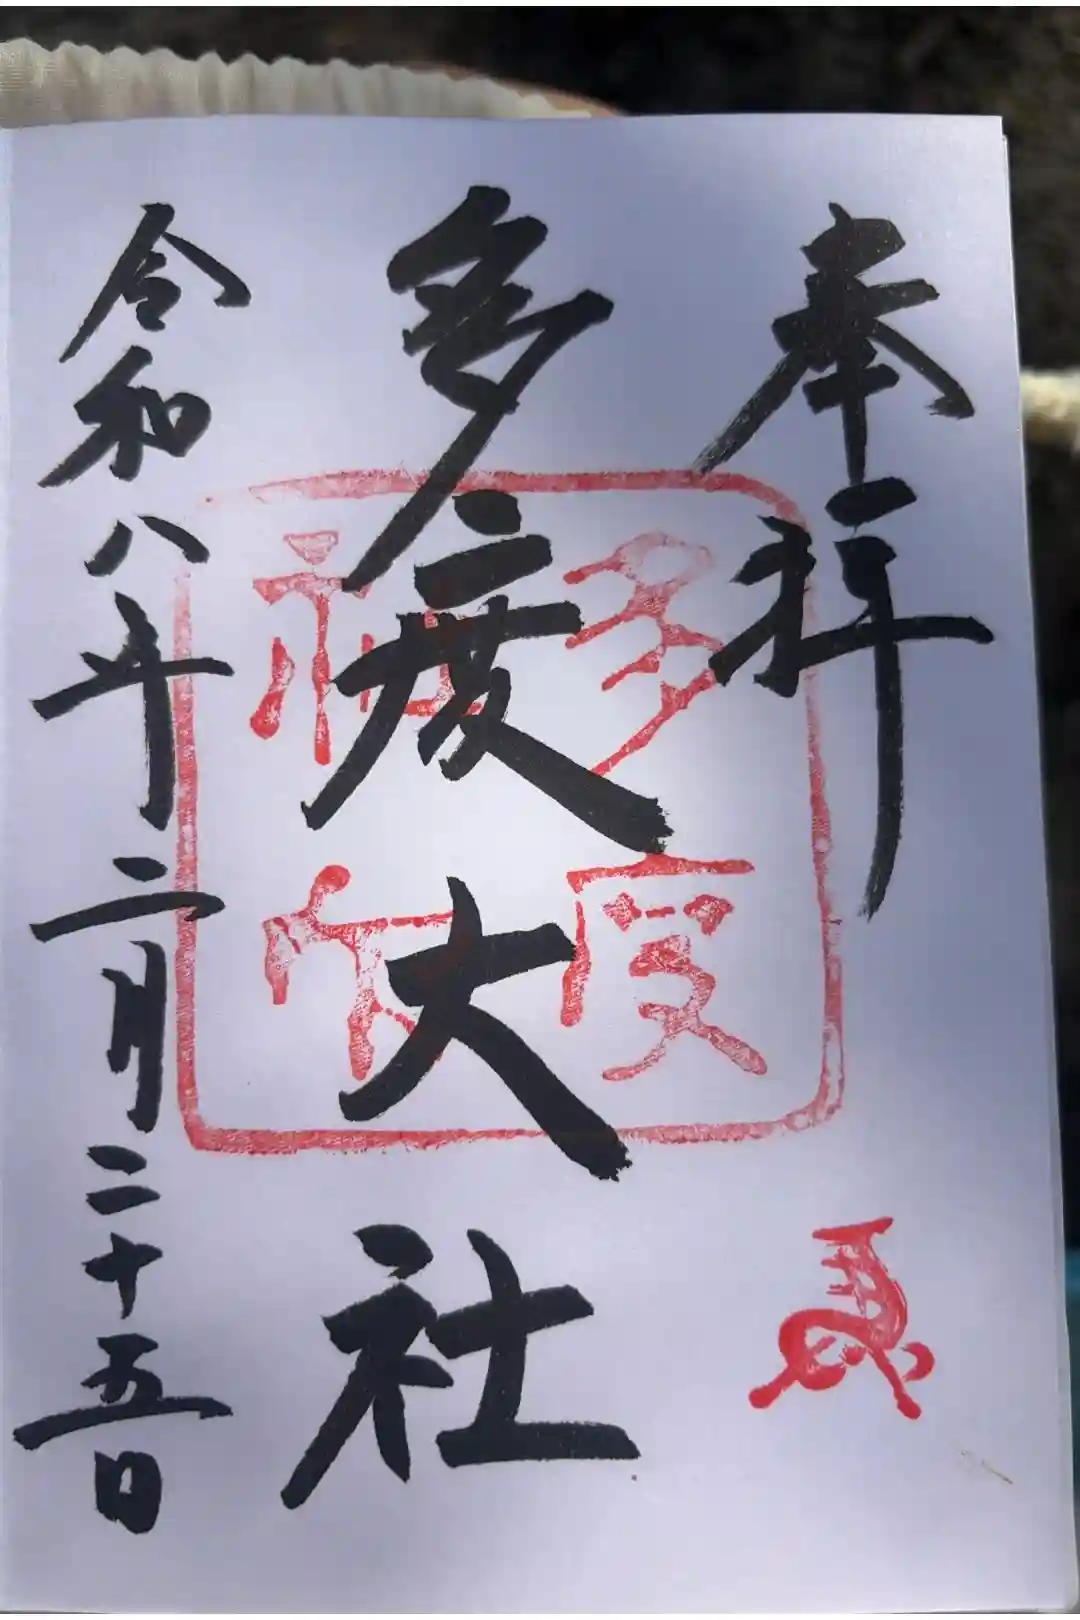 奉拝
多度大社
令和八年二月二十五日
多度